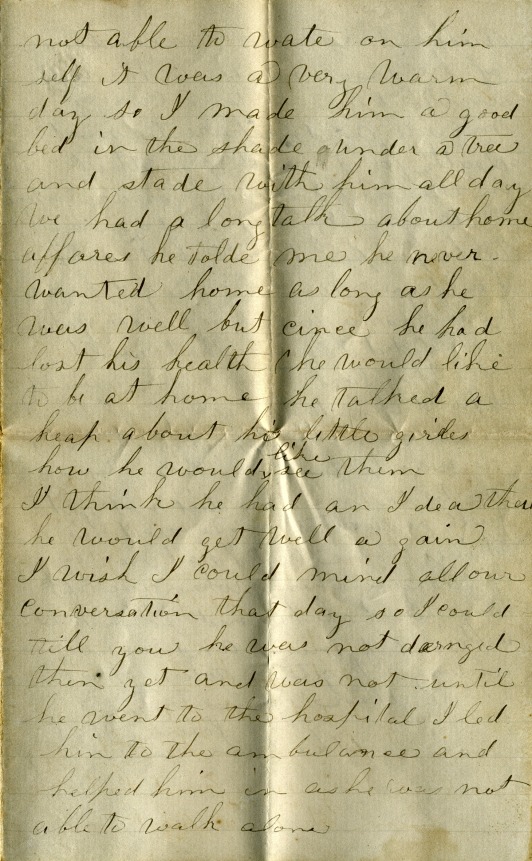 not able to wate on him
self it was a very warm
day so I made him a good
bed in the shade under a tree
and stade with him all day
we had a long talk about home
affares he tolde me he never
wanted home as long as he
was well but cince he had
lost his health he would like
to be at home he talked a
heap about his little girles
how he would like to see them
I think he had an Idea that
he would get well a gain
I wish I could mind all our
conversation that day so I could
till you he was not dernged
then yet and was not until
he went to the hospital I led
him to the ambulance and
helped him in as he was not
able to walk alone